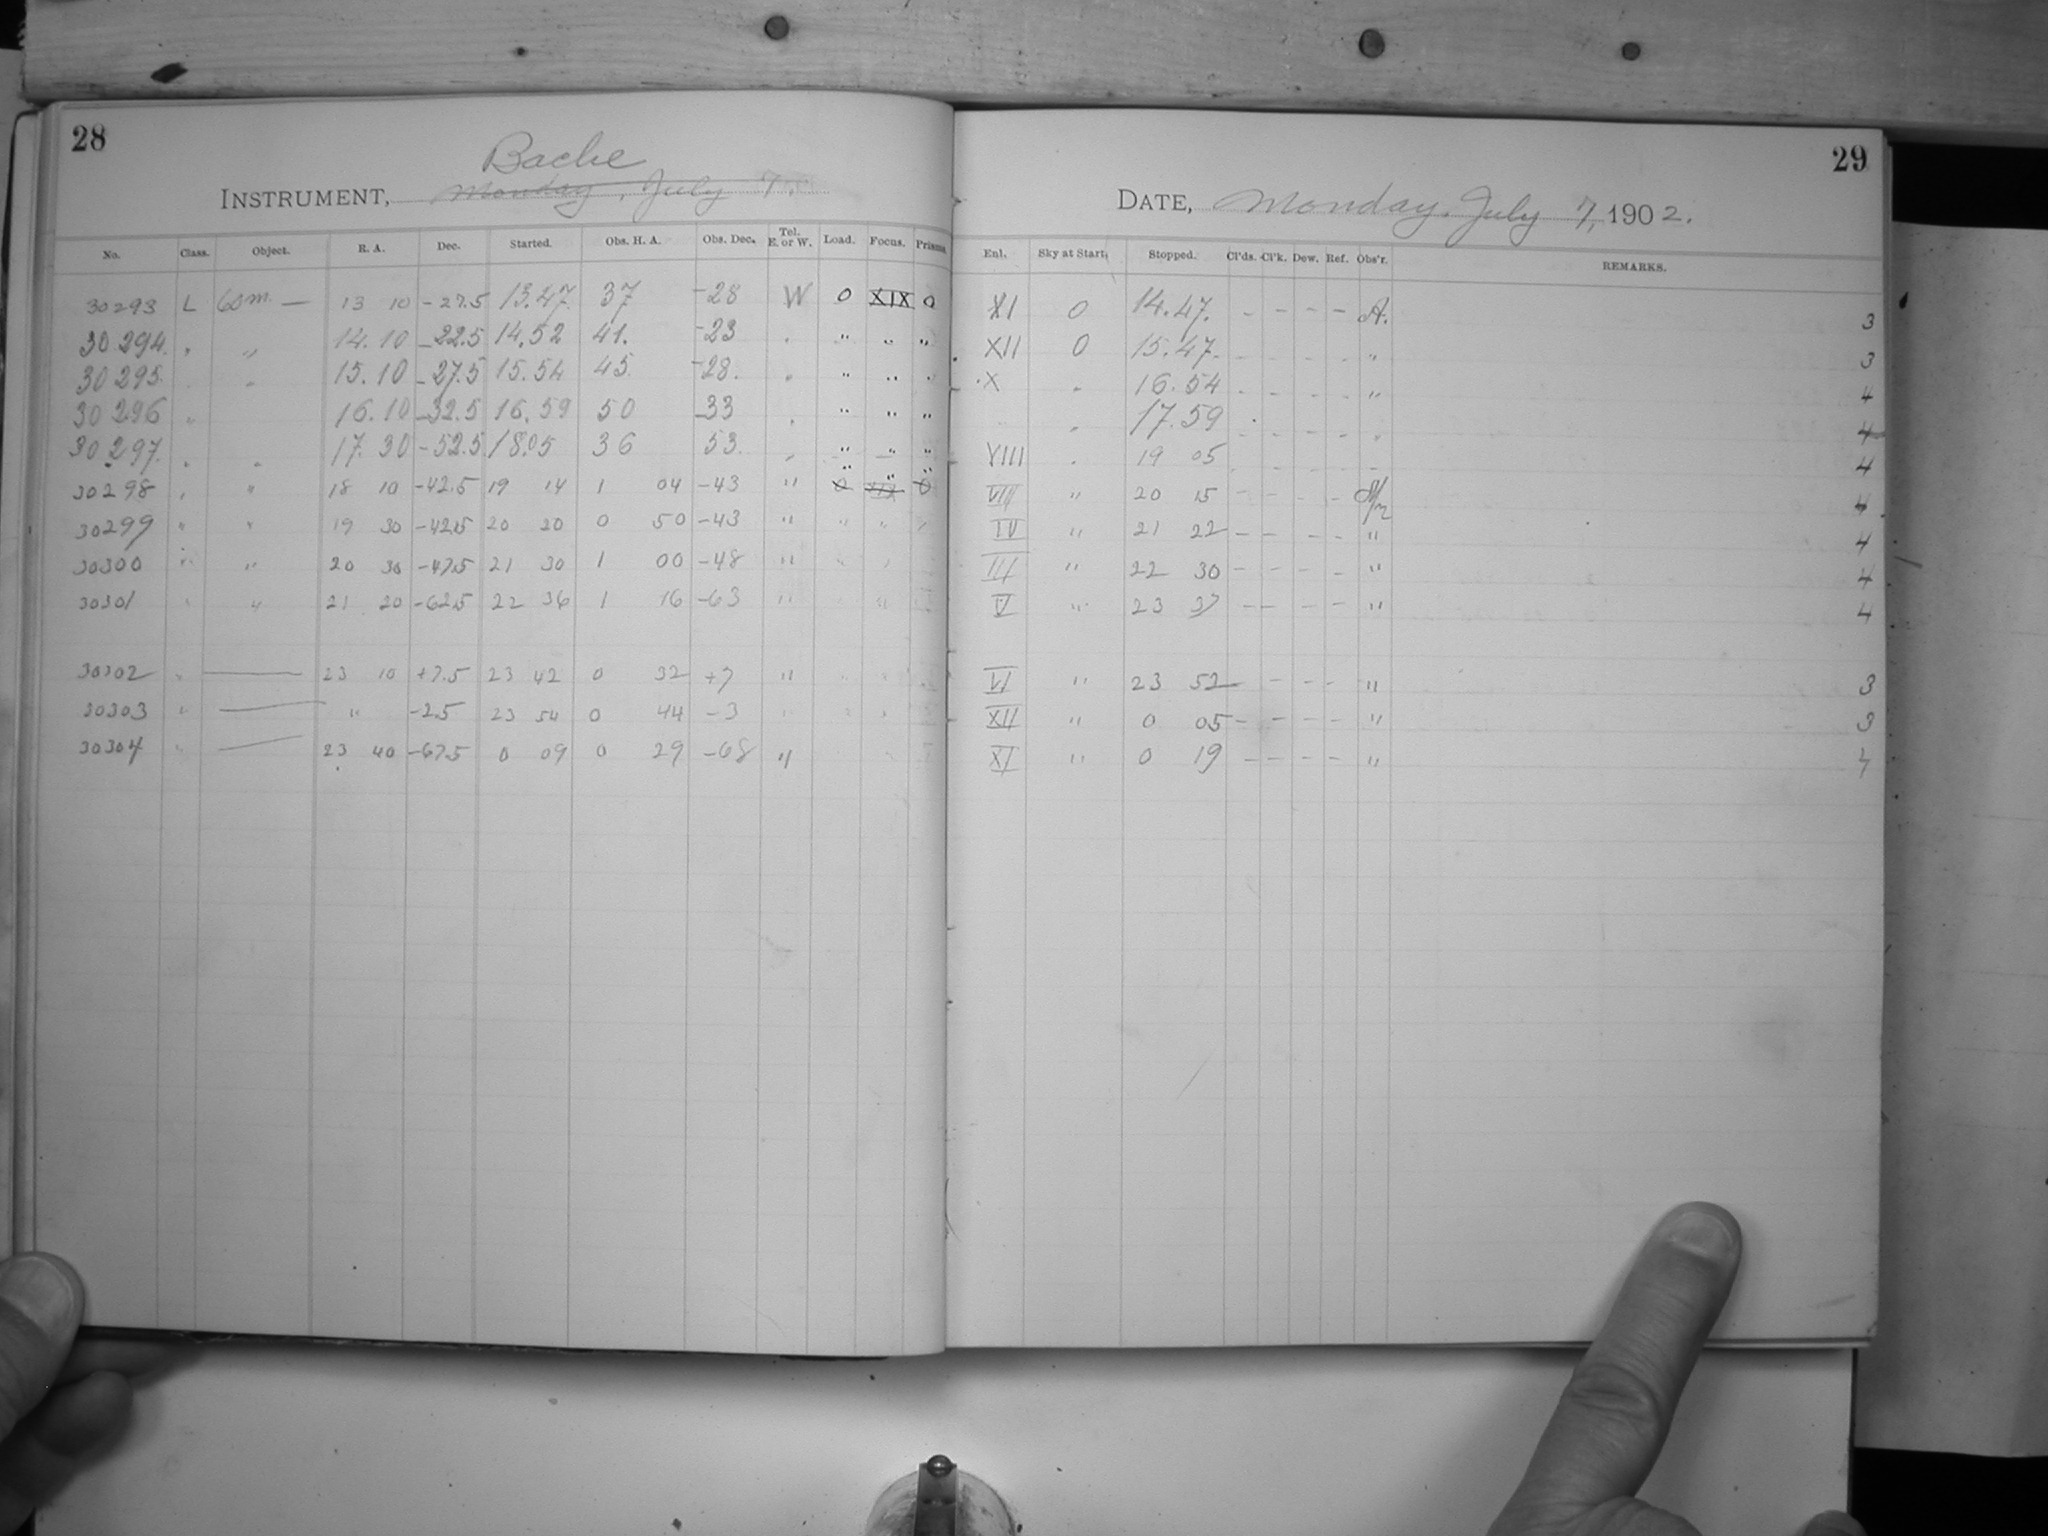 28
Bache
INSTRUMENT, Monday, July 7.
No. Class. Object. R. A. Dec. Started. Obs. H. A. Obs. Dec. Tel. E. or W. Load. Focus. Prisms.
30293 L 60m. — 13 10 -27.5 13.47. 37 -28 W 0 XIX 0
30294. " " 14.10 -22.5 14.52 41. -23 " " " "
30295. " 15.10 -27.5 15.54 45. -28. " " " "
30296 " 16.10 -32.5 16.59 50 -33 " " " "
30297. " " 17.30 -52.5 18.05 36 53. " " " "
30298 " " 18 10 -42.5 19 14 1 04 -43 " 0 XIX 0
30299 " " 19 30 -42.5 20 20 0 50 -43 " " " "
30300 " " 20 30 -47.5 21 30 1 00 -48 " " "
30301 " " 21 20 -62.5 22 36 1 16 -63 " "
30302 " — 23 10 +7.5 23 42 0 32 +7 "
30303 " — " -2.5 23 54 0 44 -3 " "
30304 " — 23 40 -67.5 0 09 0 29 -68 "
29
DATE, Monday. July 7, 1902.
Enl. Sky at Start. Stopped. Cl'ds. Cl'k. Dew. Ref. Obs'r. REMARKS.
XI 0 14.47. - - - - A. 3
XII 0 15.47. - - - - " 3
X " 16.54 - - - - " 4
" 17.59 - - - - " 4
VIII " 19 05 - - - - - 4
VII " 20 15 - - - - 4
IV " 21 22 - - - - " 4
III " 22 30 - - - - " 4
V " 23 37 - - - - " 4
VI " 23 52 - - - - " 3
XII " 0 05 - - - - " 3
XI " 0 19 - - - - "